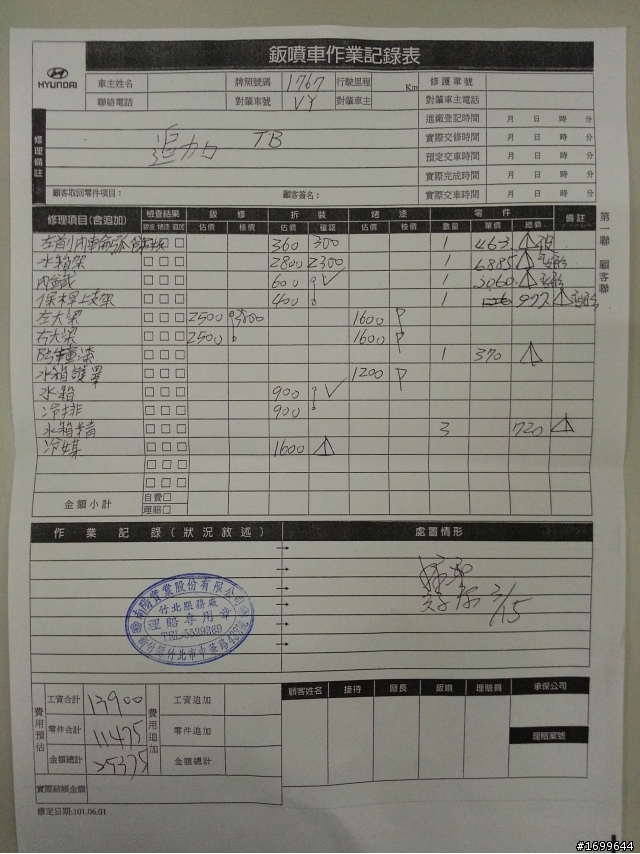 HYUNDAI
鈑噴車作業記錄表
車主姓名 牌照號碼 1767 行駛里程 Km 修護單號
聯絡電話 對肇車號 VY 對肇車主 對肇車主電話
修理備註
追加 TB
進廠登記時間 月 日 時 分
實際交修時間 月 日 時 分
預定交車時間 月 日 時 分
實際完成時間 月 日 時 分
實際交車時間 月 日 時 分
顧客取回零件項目: 顧客簽名:
第一聯 顧客聯
修理項目(含追加) 檢查結果 鈑修 拆裝 烤漆 零件 備註
鈑金 烤漆 追加 估價 核價 估價 確認 估價 核價 數量 單價 總價
360 300 1 463
水箱架 2800 2300 1 6885 變形
內鐵 600 1 3060 變形
保桿上支架 400 1 997 變形
左大梁 2500 1600
右大梁 2500 1600
防鏽漆 1 370
水箱護罩 1200
水箱 900
冷排 900
水箱精 3 720
冷媒 1600
金額小計 自費 理賠
作業記錄(狀況敘述) 處置情形
2/15
南陽實業股份有限公司
竹北服務處
理賠專用章
TEL:5529369
費用預估 工資合計 13900 費用追加 工資追加
零件合計 11475 零件追加
金額總計 25375 金額總計
實際結帳金額
顧客姓名 接待 廠長 鈑噴 理賠員 承保公司
理賠案號
修定日期:101.06.01
#1699644